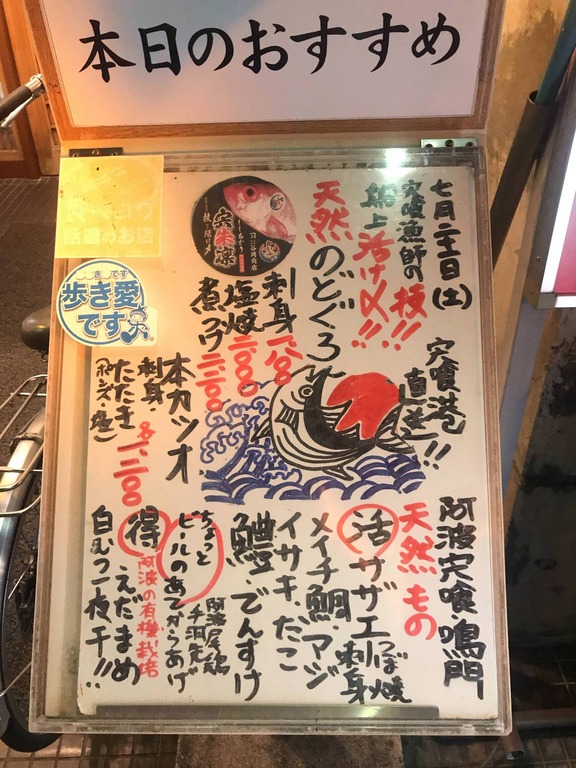 本日のおすすめ
七月二十二日(土)
宍喰漁師の技!!
船上活け〆!!
天然のどぐろ
刺身一八〇〇
塩焼二〇〇〇
煮つけ二二〇〇
宍喰港
直送!!
本カツオ
刺身・
たたき
各一、二〇〇
阿波宍喰・鳴門
天然もの
活サザエ
つぼ焼
刺身
メイチ鯛・マジ
イサキ・だこ
鱧・でんすけ
阿波尾鶏
ちょっと
ビールのあてからあげ
得えだまめ
阿波の有機栽培
白むつ一夜干!!
話題のお店
歩き愛
です